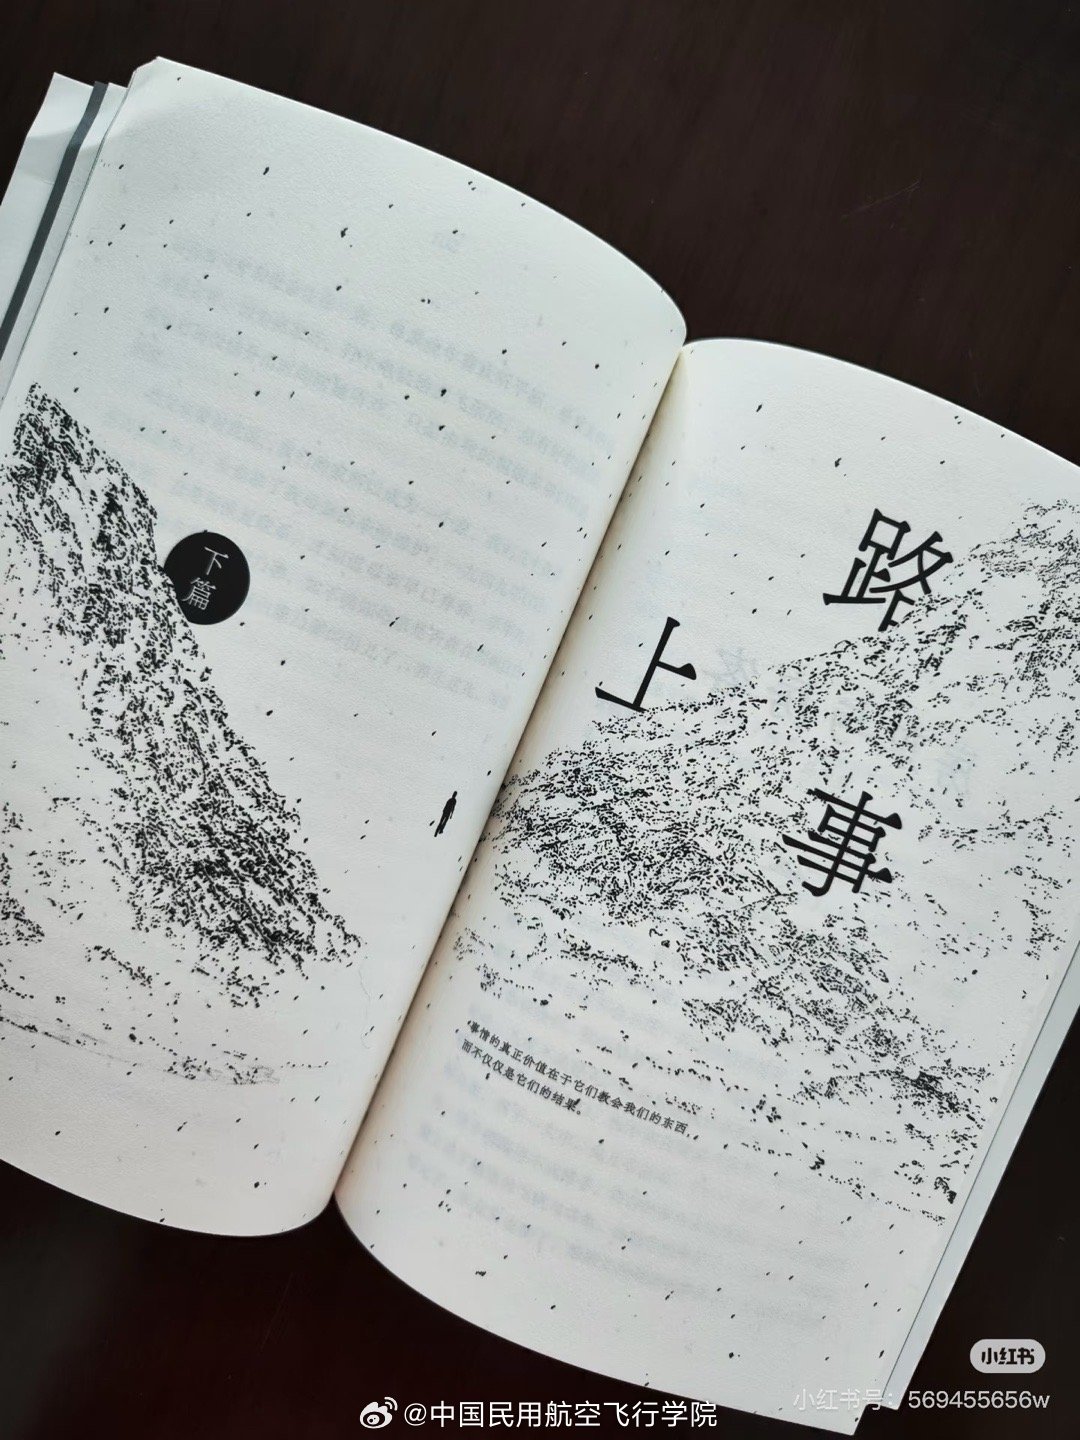 下篇
路上事
事情的真正价值在于它们教会我们的东西，
而不仅仅是它们的结果。
小红书
小红书号：569455656w
@中国民用航空飞行学院